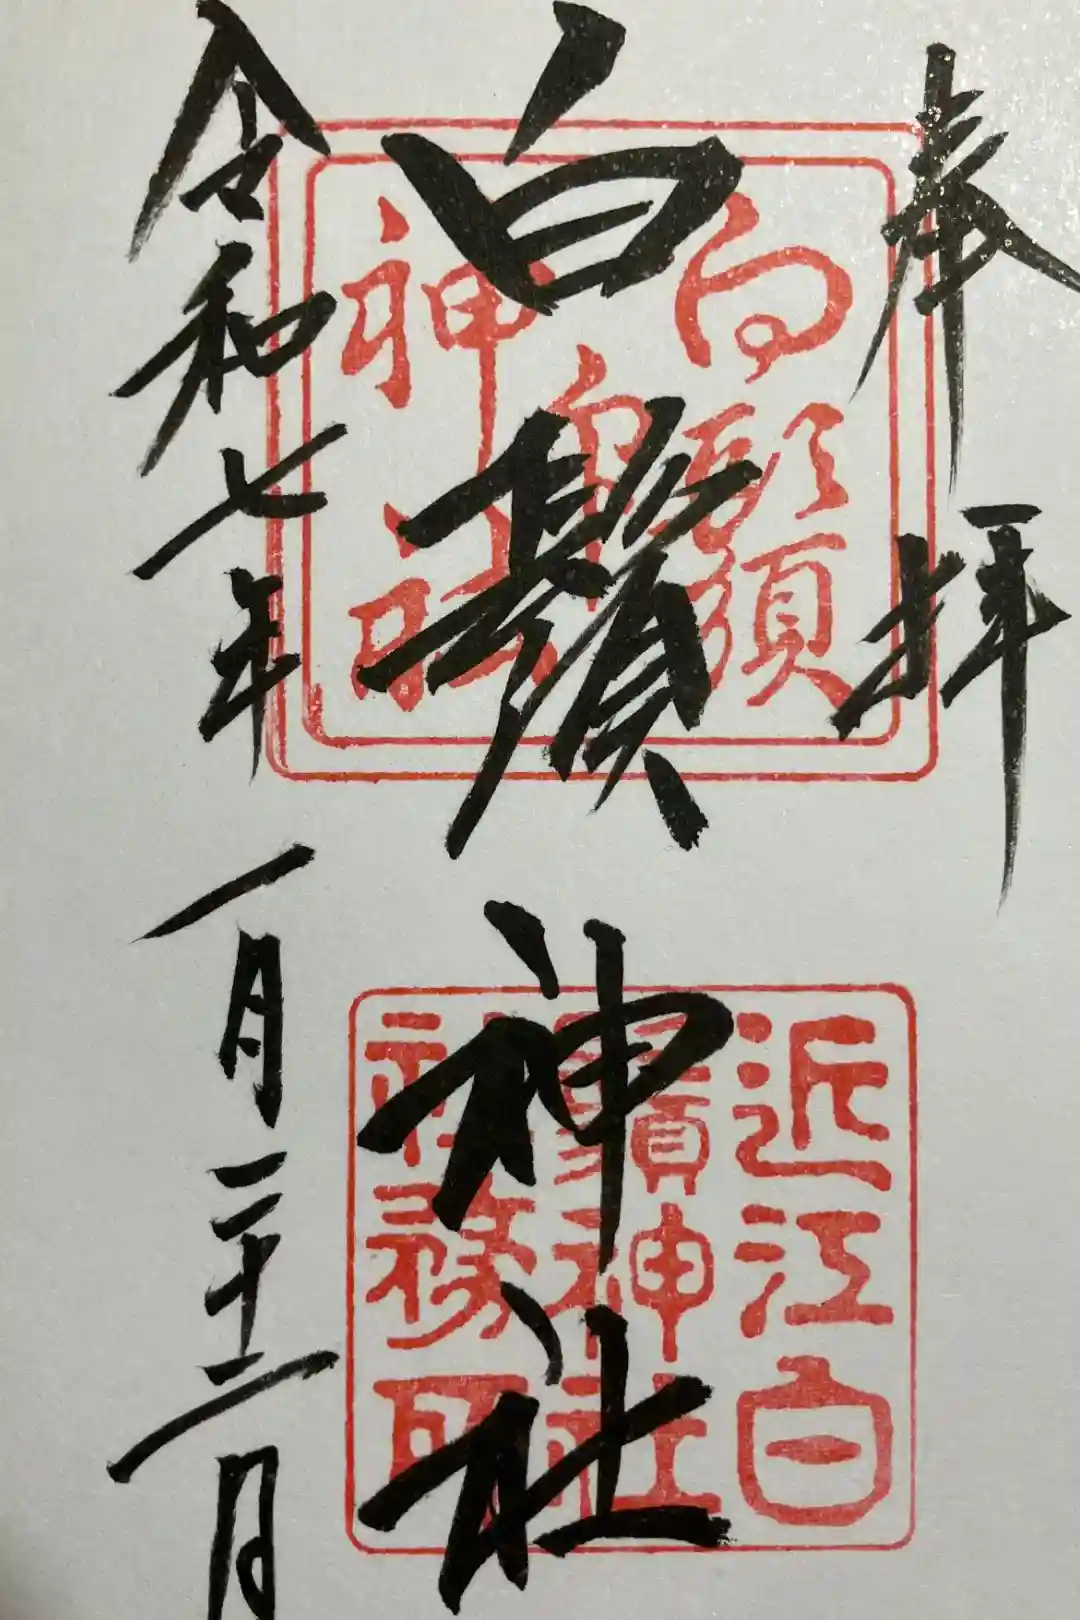 奉拝
白鬚神社
令和七年一月二十二日
白鬚
神社
近江白
鬚神社
社務所